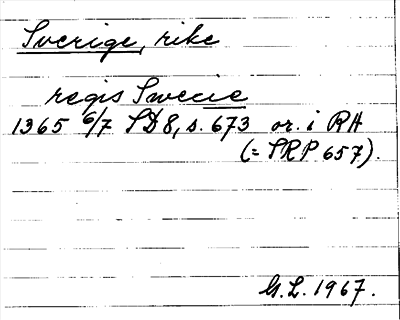 Sverige, rike
regis Swecie
1365 6/7 SD 8, s. 673 or. i RA
(= SRP 657).
G.L. 1967.